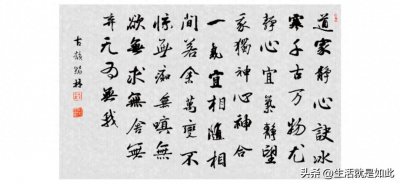 道家静心訣冰
寒千古万物尤
静心宜氣静望
我獨神心神合
一氣宜相随相
間若余萬變不
惊無痴無嗔無
欲無求無舍無
弃无为無我
头条 @生活就是如此